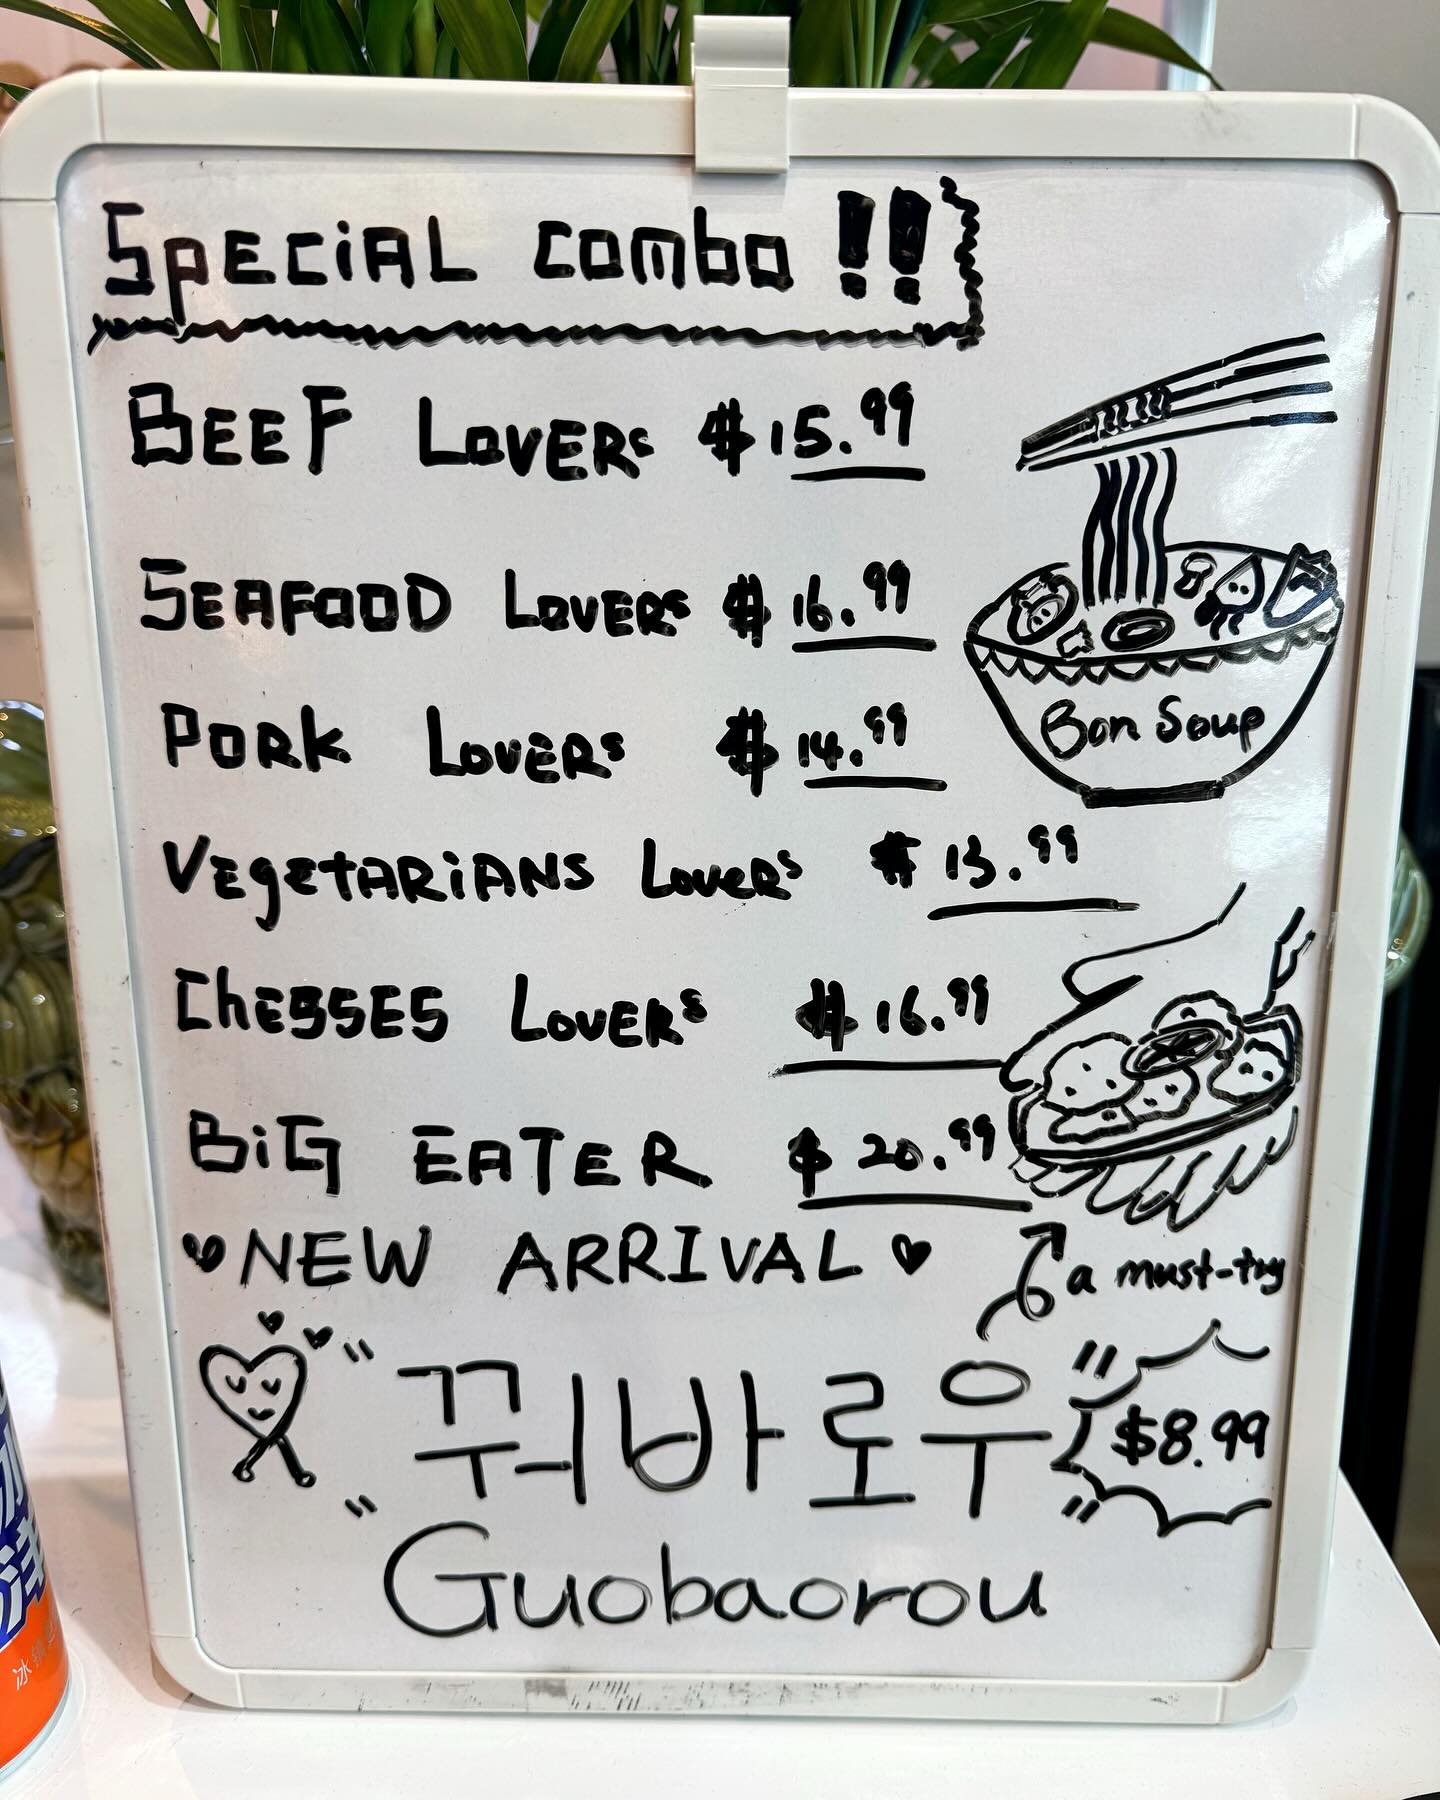 Special combo !!
BEEF LOVERS $15.99
SEAFOOD LOVERS $16.99
Bon Soup
PORK LOVERS $14.99
VegetARiANS LoveRS $13.99
ChESSES LOVERS $16.99
BiG EATER $20.99
NEW ARRIVAL
a must-try
"꿔바로우"
$8.99
Guobaorou
冰